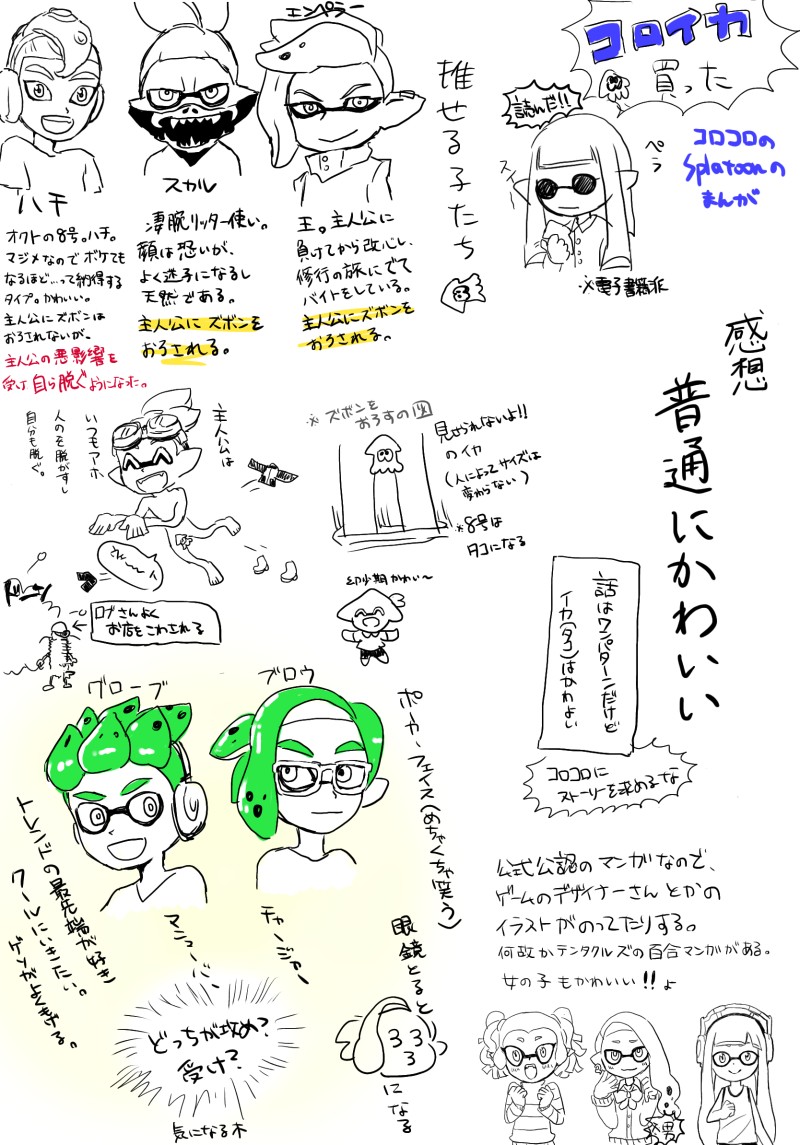 コロイカ
買った
コロコロの
Splatoonの
まんが
読んだ!!
ペラ
スイー
※電子書籍派
推せる子たち
エンペラー
王。主人公に
負けてから改心し、
修行の旅にでて
バイトをしている。
主人公にズボンを
おろされる。
スカル
凄腕リッター使い。
顔は恐いが、
よく迷子になるし
天然である。
主人公にズボンを
おろされる。
ハチ
オクトの8号。ハチ。
マジメなのでボケても
なるほど…って納得する
タイプ。かわいい。
主人公にズボンは
おろされないが、
主人公の悪影響を
受け自ら脱ぐようになった。
感想
普通にかわいい
話はワンパターンだけど
イカ(タコ)はかわよい
コロコロに
ストーリーを求めるな
主人公は
いつもアホ
人のを脱がすし
自分も脱ぐ。
※ズボンを
おろすの図
見せられないよ!!
のイカ
(人によってサイズは
変わらない)
※8号は
タコになる
ロブさんよく
お店をこわされる
幼少期かわい〜
グローブ
ブロウ
ポーカーフェイス(めちゃくちゃ笑う)
トレンドの最先端が好き
クールにいきたい。
ゲソがよくぎる。
マニューバー
チャージャー
眼鏡とると
33
3
になる
どっちが攻め?
受け?
気になる木
公式公認のマンガなので、
ゲームのデザイナーさんとかの
イラストがのってたりする。
何故かテンタクルズの百合マンガがある。
女の子もかわいい!!
男